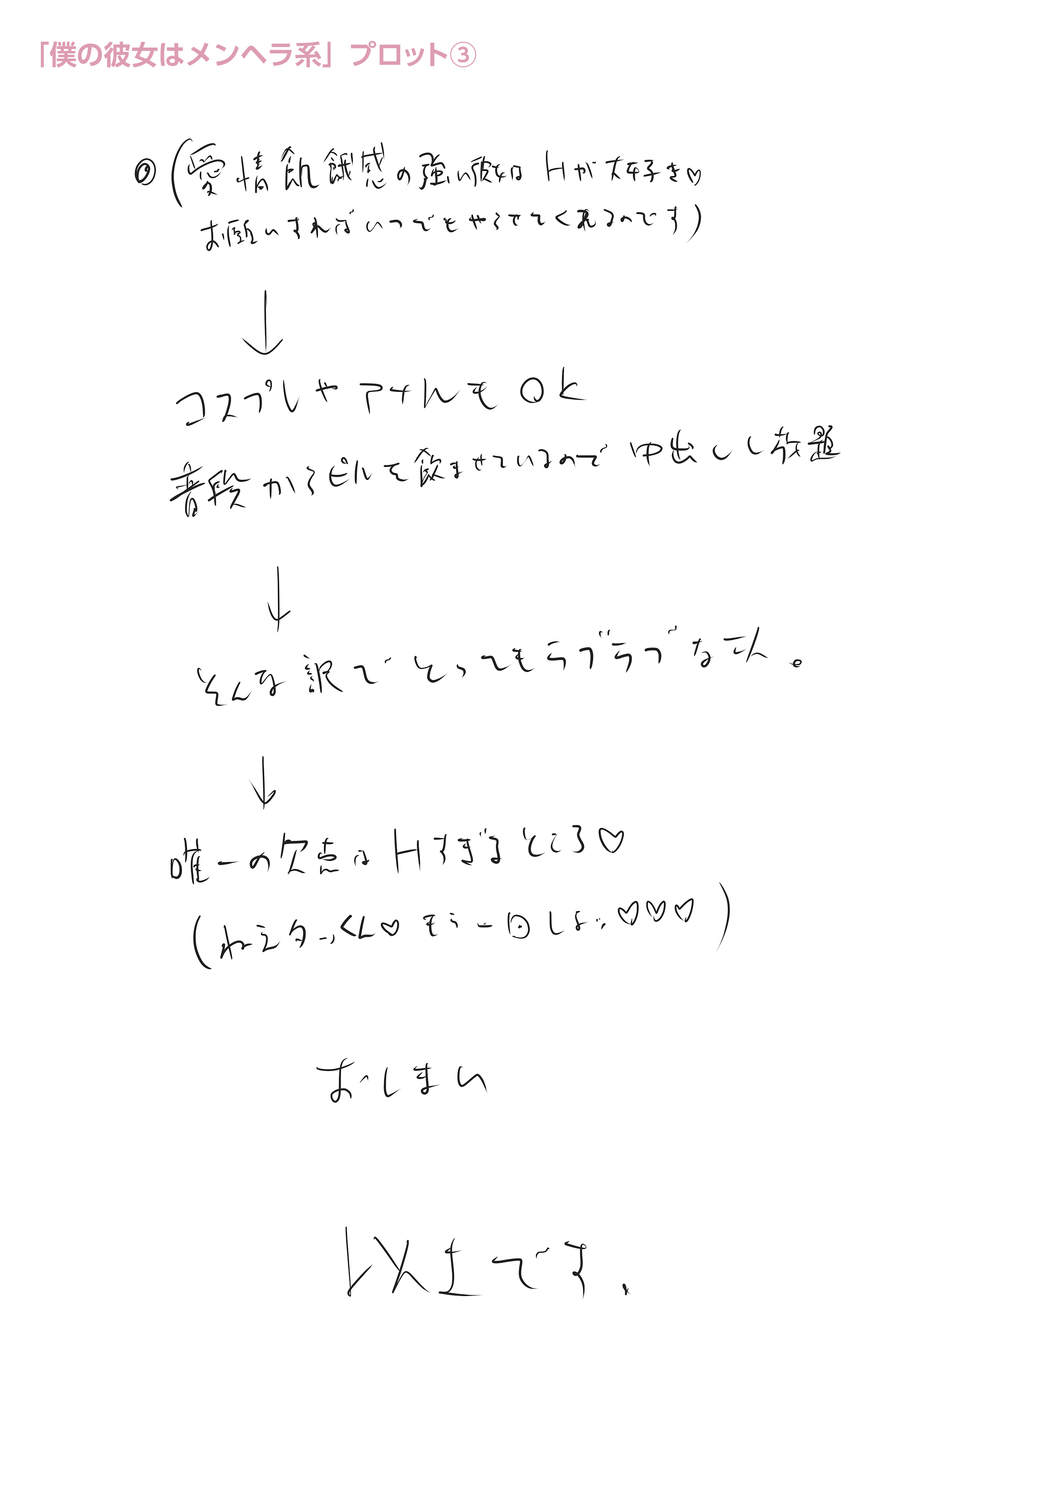 「僕の彼女はメンヘラ系」プロット③
◎(愛情飢餓感の強い彼女は Hが大好き♡
お願いすればいつでもやらせてくれるのです)
↓
コスプレやアナルもOK
普段からピルを飲ませているので中出しし放題
↓
そんな訳でとってもラブラブな二人。
↓
唯一の欠点はHすぎるところ♡
(ねえターくん♡もう一回しよ♡♡♡)
おしまい
以上です.